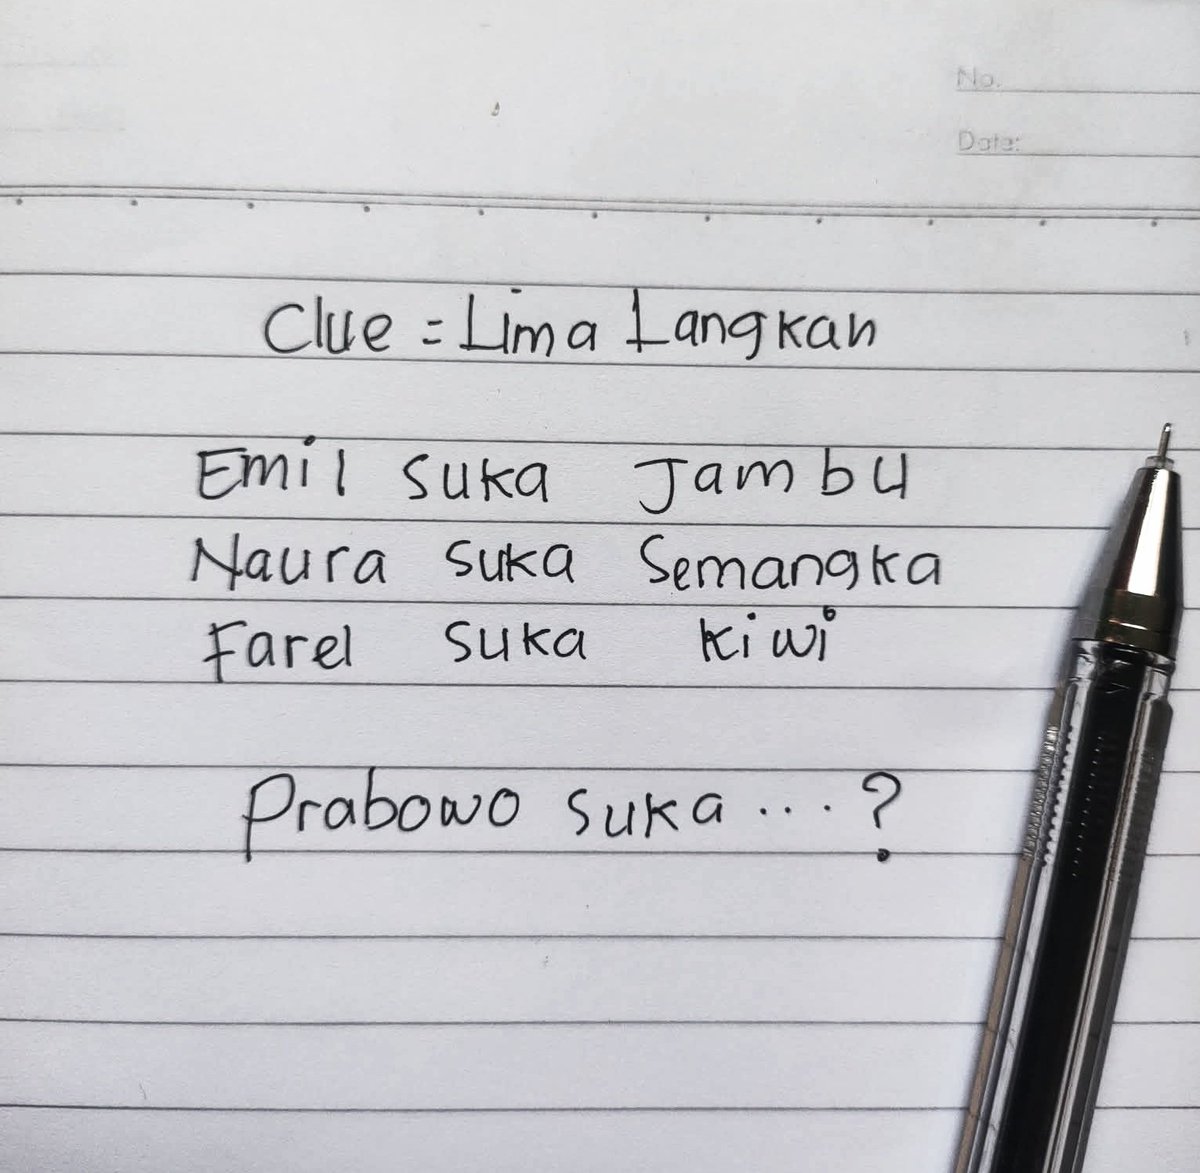 No.
Date:
Clue = Lima Langkan
Emil suka Jambu
Naura suka Semangka
Farel suka kiwi
Prabowo suka ... ?